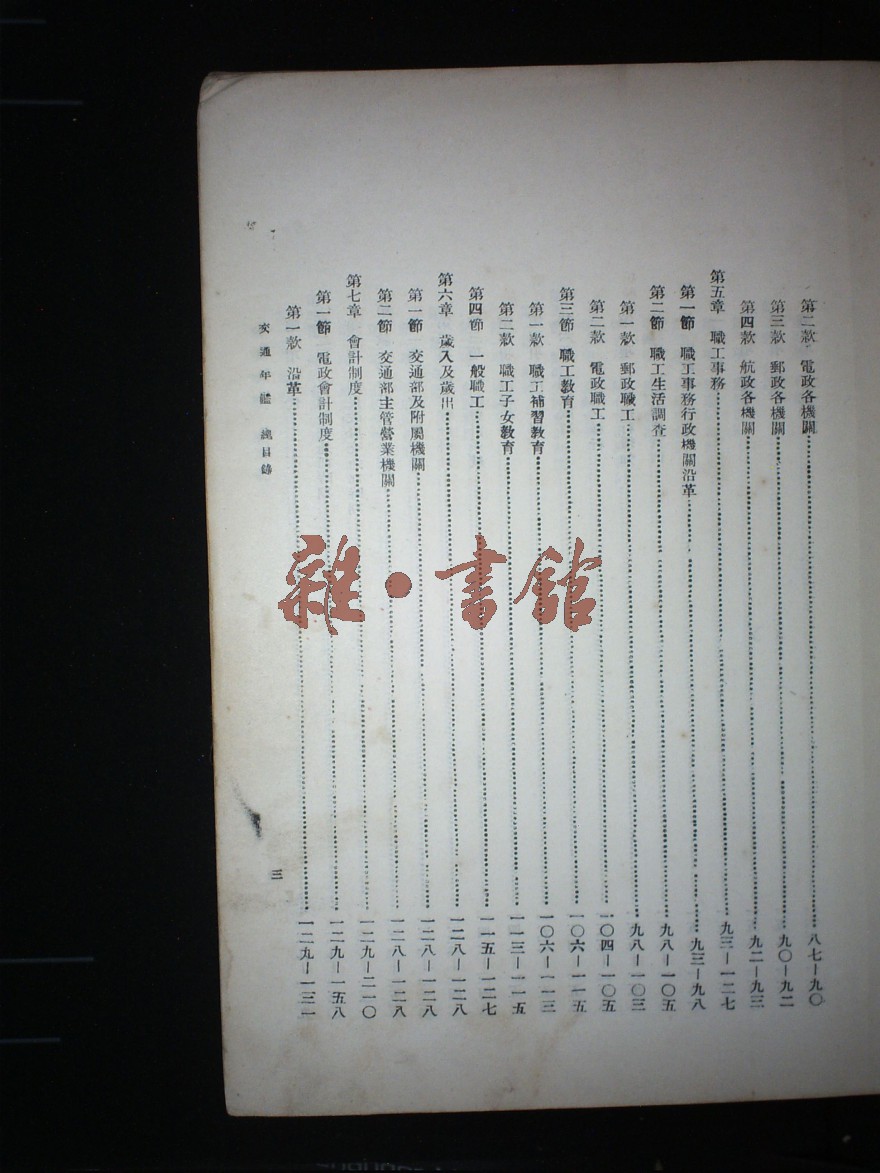 第二款 電政各機關 八七—九〇
第三款 郵政各機關 九〇—九二
第四款 航政各機關 九二—九三
第五章 職工事務 九三—一二七
第一節 職工事務行政機關沿革 九三—九八
第二節 職工生活調查 九八—一〇五
第一款 郵政職工 九八—一〇三
第二款 電政職工 一〇四—一〇五
第三節 職工教育 一〇六—一一五
第一款 職工補習教育 一〇六—一一三
第二款 職工子女教育 一一三—一一五
第四節 一般職工 一一五—一二七
第六章 歲入及歲出 一二八—一二八
第一節 交通部及附屬機關 一二八—一二八
第二節 交通部主管營業機關 一二八—一二八
第七章 會計制度 一二九—二一〇
第一節 電政會計制度 一二九—一五八
第一款 沿革 一二九—一三一
交通年鑑 總目錄 三
雜·書館